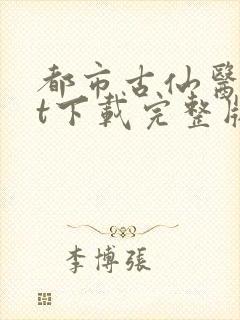 都市古仙醫
t下載完整版
李博張